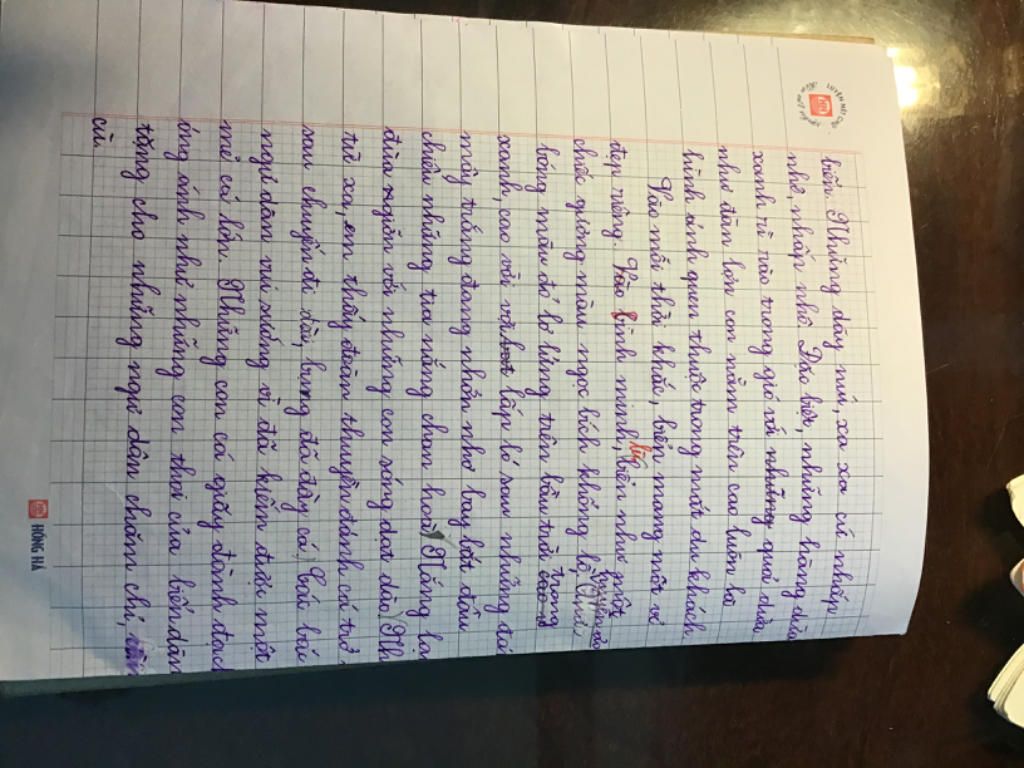 biển. Những dãy núi, xa xa cứ nhấp
nhô, nhấp nhô. Đặc biệt, những hàng dừa
xanh rì rào trong gió với những quả dừa
như đàn lợn con nằm trên cao luôn là
hình ảnh quen thuộc trong mắt du khách.
Vào mỗi thời khắc, biển mang một vẻ
đẹp riêng. Vào bình minh, biển như một
chiếc gương màu ngọc bích khổng lồ.
bóng màu đỏ lơ lửng trên bầu trời trong
xanh, cao vời vợi lấp ló sau những đá
mây trắng đang nhởn nhơ bay bắt đầu
chiếu những tia nắng chan hoà. Nắng
đùa nghịch với những con sóng dạt dào.
từ xa, em thấy đoàn thuyền đánh cá trở
sau chuyến đi dài, bụng đã đầy cá.
ngư dân vui sướng vì đã kiếm được một
mẻ cá lớn. Những con cá giãy đành đạch
óng ánh như những con thoi của biển dành
tặng cho những ngư dân chăm chỉ,
cù.
LUYỆN NÉT CHỮ
HỒNG HÀ